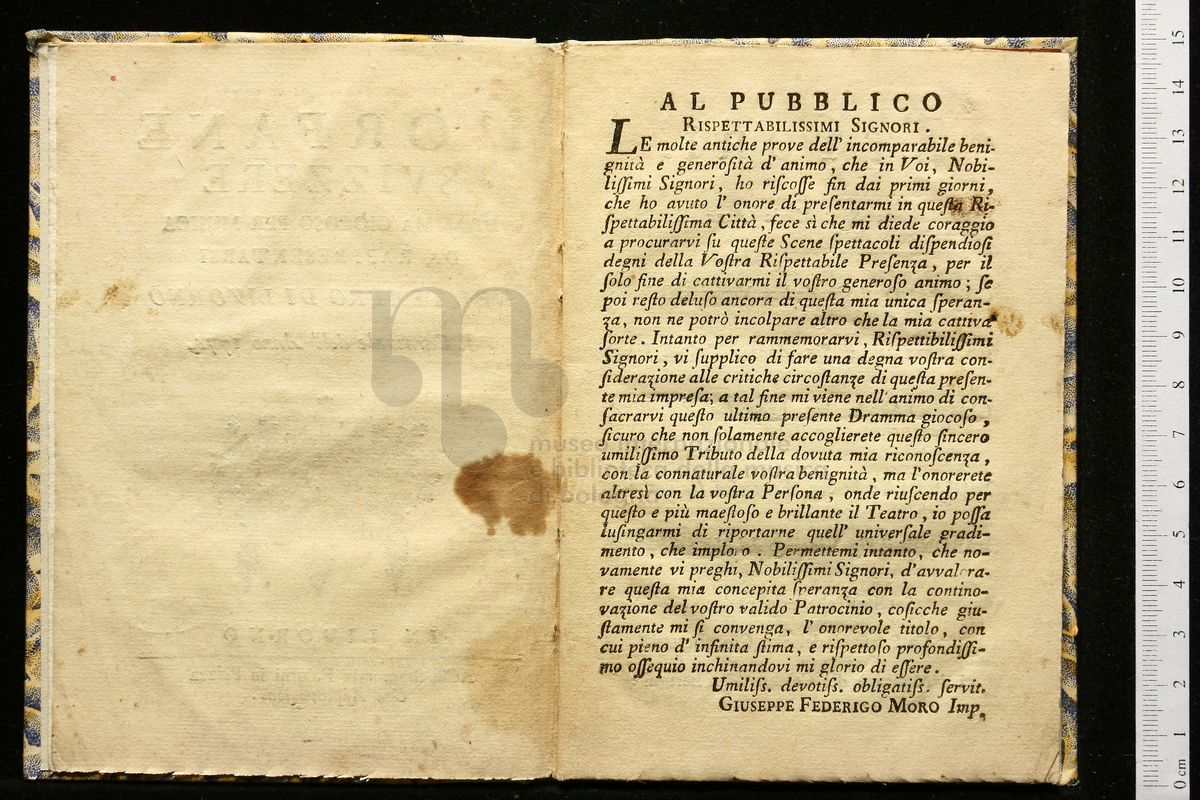 AL PUBBLICO
RISPETTABILISSIMI SIGNORI.
LE molte antiche prove dell' incomparabile beni-
gnità e generoſità d' animo, che in Voi, Nobi-
liſſimi Signori, ho riſcoſſe fin dai primi giorni,
che ho avuto l' onore di preſentarmi in queſta Ri-
ſpettabiliſſima Città, fece sì che mi diede coraggio
a procurarvi ſu queſte Scene ſpettacoli diſpendioſi
degni della Voſtra Riſpettabile Preſenza, per il
ſolo fine di cattivarmi il voſtro generoſo animo; ſe
poi reſto deluſo ancora di queſta mia unica ſperan-
za, non ne potrò incolpare altro che la mia cattiva
ſorte. Intanto per rammemorarvi, Riſpettibiliſſimi
Signori, vi ſupplico di fare una degna voſtra con-
ſiderazione alle critiche circoſtanze di queſta preſen-
te mia impreſa; a tal fine mi viene nell' animo di con-
ſacrarvi queſto ultimo preſente Dramma giocoſo,
ſicuro che non ſolamente accoglierete queſto ſincero
umiliſſimo Tributo della dovuta mia riconoſcenza,
con la connaturale voſtra benignità, ma l'onorerete
altresì con la voſtra Perſona, onde riuſcendo per
queſto e più maeſtoſo e brillante il Teatro, io poſſa
luſingarmi di riportarne quell' univerſale gradi-
mento, che imploro. Permettemi intanto, che no-
vamente vi preghi, Nobiliſſimi Signori, d'avvalora-
re queſta mia concepita ſperanza con la contino-
vazione del voſtro valido Patrocinio, coſicche giu-
ſtamente mi ſi convenga, l' onorevole titolo, con
cui pieno d' infinita ſtima, e riſpettoſo profondiſſi-
mo oſſequio inchinandovi mi glorio di eſſere.
Umiliſs. devotiſs. obligatiſs. ſervit.
GIUSEPPE FEDERIGO MORO Imp,
0 cm 1 2 3 4 5 6 7 8 9 10 11 12 13 14 15